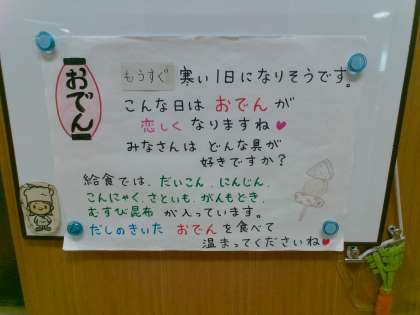 おでん
もうすぐ 寒い1日になりそうです。
こんな日は おでん が
恋しく なりますね♥
みなさんは どんな具が
好きですか?
給食では、だいこん、にんじん、
こんにゃく、さといも、がんもどき、
むすび昆布 が入っています。
だしのきいた おでん を食べて
温まってくださいね♥